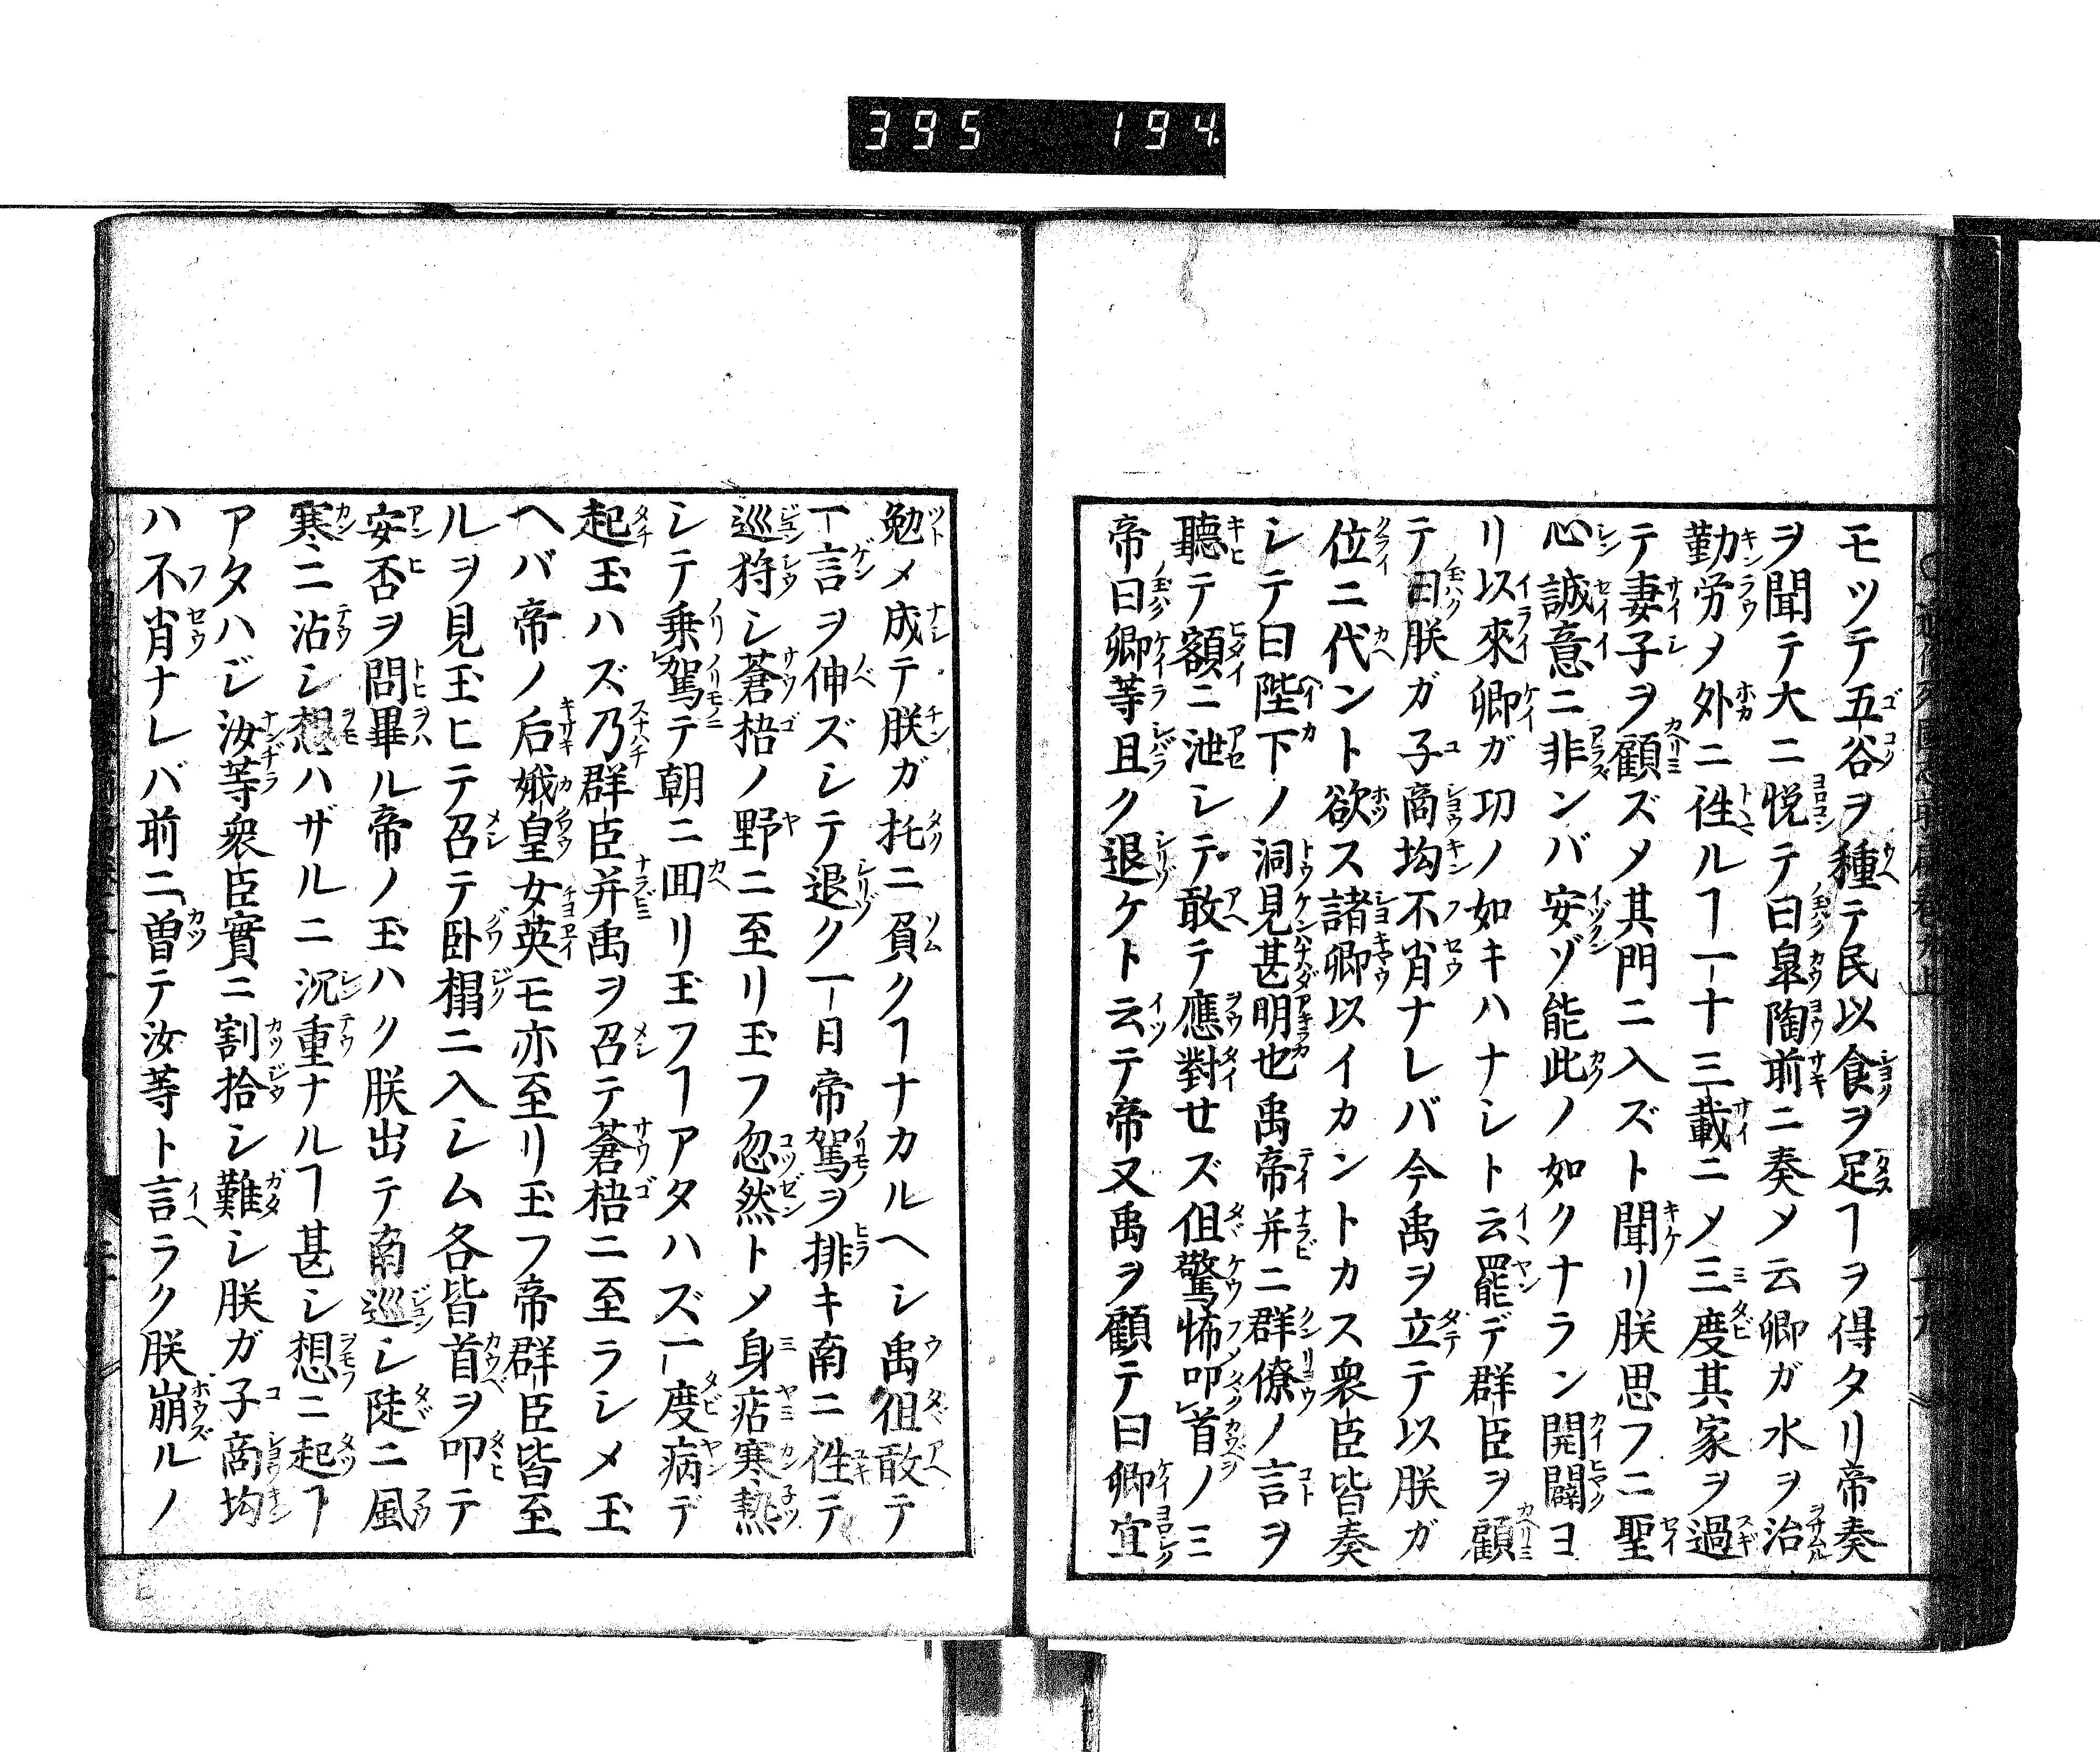 395 194
モツテ五谷ヲ種テ民以食ヲ足ヿヲ得タリ帝奏
ヲ聞テ大ニ悦テ曰皐陶前ニ奏メ云卿ガ水ヲ治
勤労メ外ニ徃ルヿ一十三載ニメ三度其家ヲ過
テ妻子ヲ顧ズメ其門ニ入ズト聞リ朕思フニ聖
心誠意ニ非ンバ安ゾ能此ノ如クナラン開闢ヨ
リ以來卿ガ功ノ如キハナシト云罷デ群臣ヲ顧
テ曰朕ガ子商均不肖ナレバ今禹ヲ立テ以朕ガ
位ニ代ント欲ス諸卿以イカントカス衆臣皆奏
シテ曰陛下ノ洞見甚明也禹帝并ニ群僚ノ言ヲ
聽テ額ニ泄シテ敢テ應對せズ但驚怖叩首ノミ
帝曰卿等且ク退ケト云テ帝又禹ヲ顧テ曰卿宜
勉メ成テ朕ガ托ニ負クヿナカルヘシ禹徂敢テ
一言ヲ伸ズシテ退ク一日帝駕ヲ排キ南ニ徃テ
巡狩シ蒼梧ノ野ニ至リ玉フ忽然トメ身痁寒熱
シテ乗駕テ朝ニ囬リ玉フヿアタハズ一度病デ
起玉ハズ乃群臣并禹ヲ召テ蒼梧ニ至ラシメ玉
ヘバ帝ノ后娥皇女英モ亦至リ玉フ帝群臣皆至
ルヲ見玉ヒテ召テ卧榻ニ入シム各皆首ヲ叩テ
安否ヲ問畢ル帝ノ玉ハク朕出テ南巡シ陡ニ風
寒ニ沾シ想ハザルニ沉重ナルヿ甚シ想ニ起ヿ
アタハジ汝等衆臣實ニ割拾シ難シ朕ガ子商均
ハ不肖ナレバ前ニ曽テ汝等ト言ラク朕崩ルノ